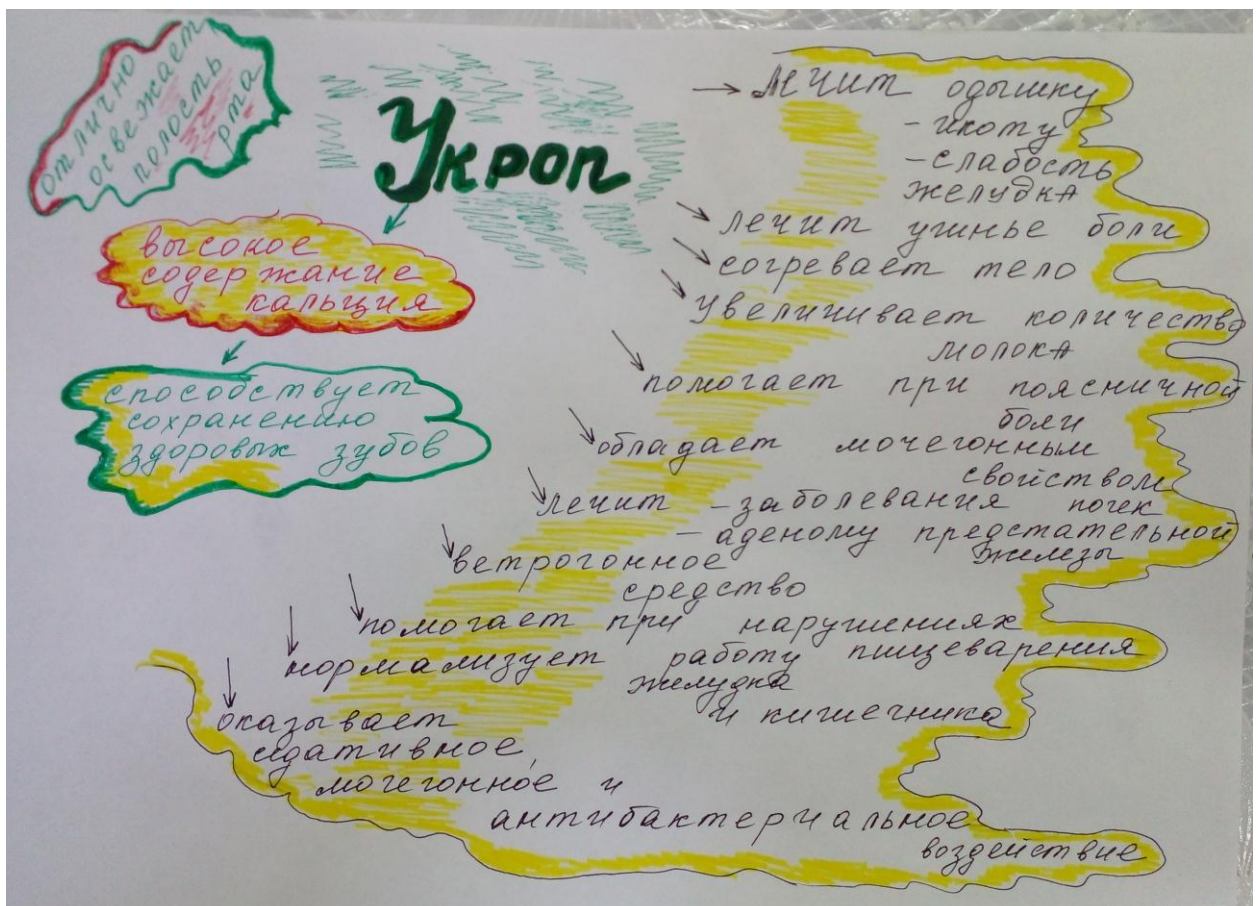 Укроп
отлично
освежает
полость
рта
высокое
содержание
кальция
способствует
сохранению
здоровых зубов
лечит одышку
- икоту
- слабость
желудка
лечит ушные боли
согревает тело
увеличивает количество
молока
помогает при поясничной
боли
обладает мочегонным
свойством
лечит - заболевания почек
- аденому предстательной
железы
ветрогонное
средство
помогает при нарушениях
пищеварения
нормализует работу
желудка
и кишечника
оказывает
седативное,
мочегонное и
антибактериальное
воздействие